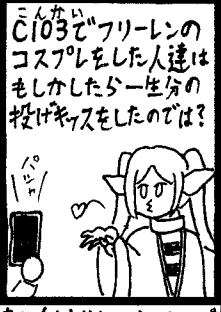 こんかい
C103でフリーレンの
コスプレをした人達は
もしかしたら一生分の
投げキッスをしたのでは?
パシャ